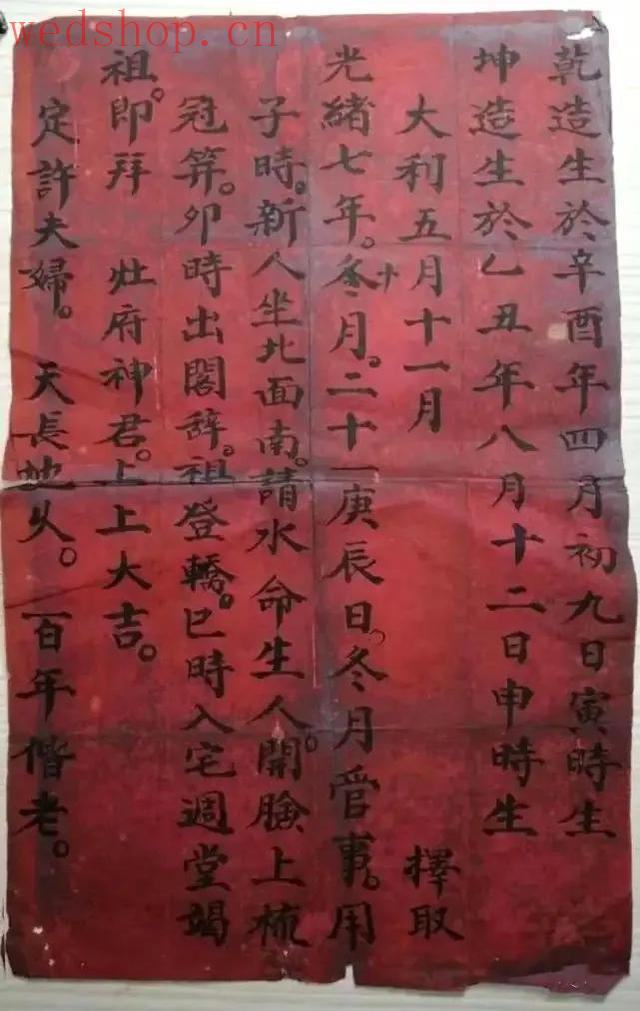 wedshop.cn
乾造生於辛酉年四月初九日寅時生
坤造生於乙丑年八月十二日申時生
大利五月十一月 擇取
光緒七年。冬月。二十一庚辰日。冬月管事。用
子時。新人坐北面南。請水命生人。開臉上梳
冠笄。卯時出閣辞。祖登轎。巳時入宅週堂竭
祖。即拜 灶府神君。上上大吉。
定許夫婦。天長地久。百年偕老。